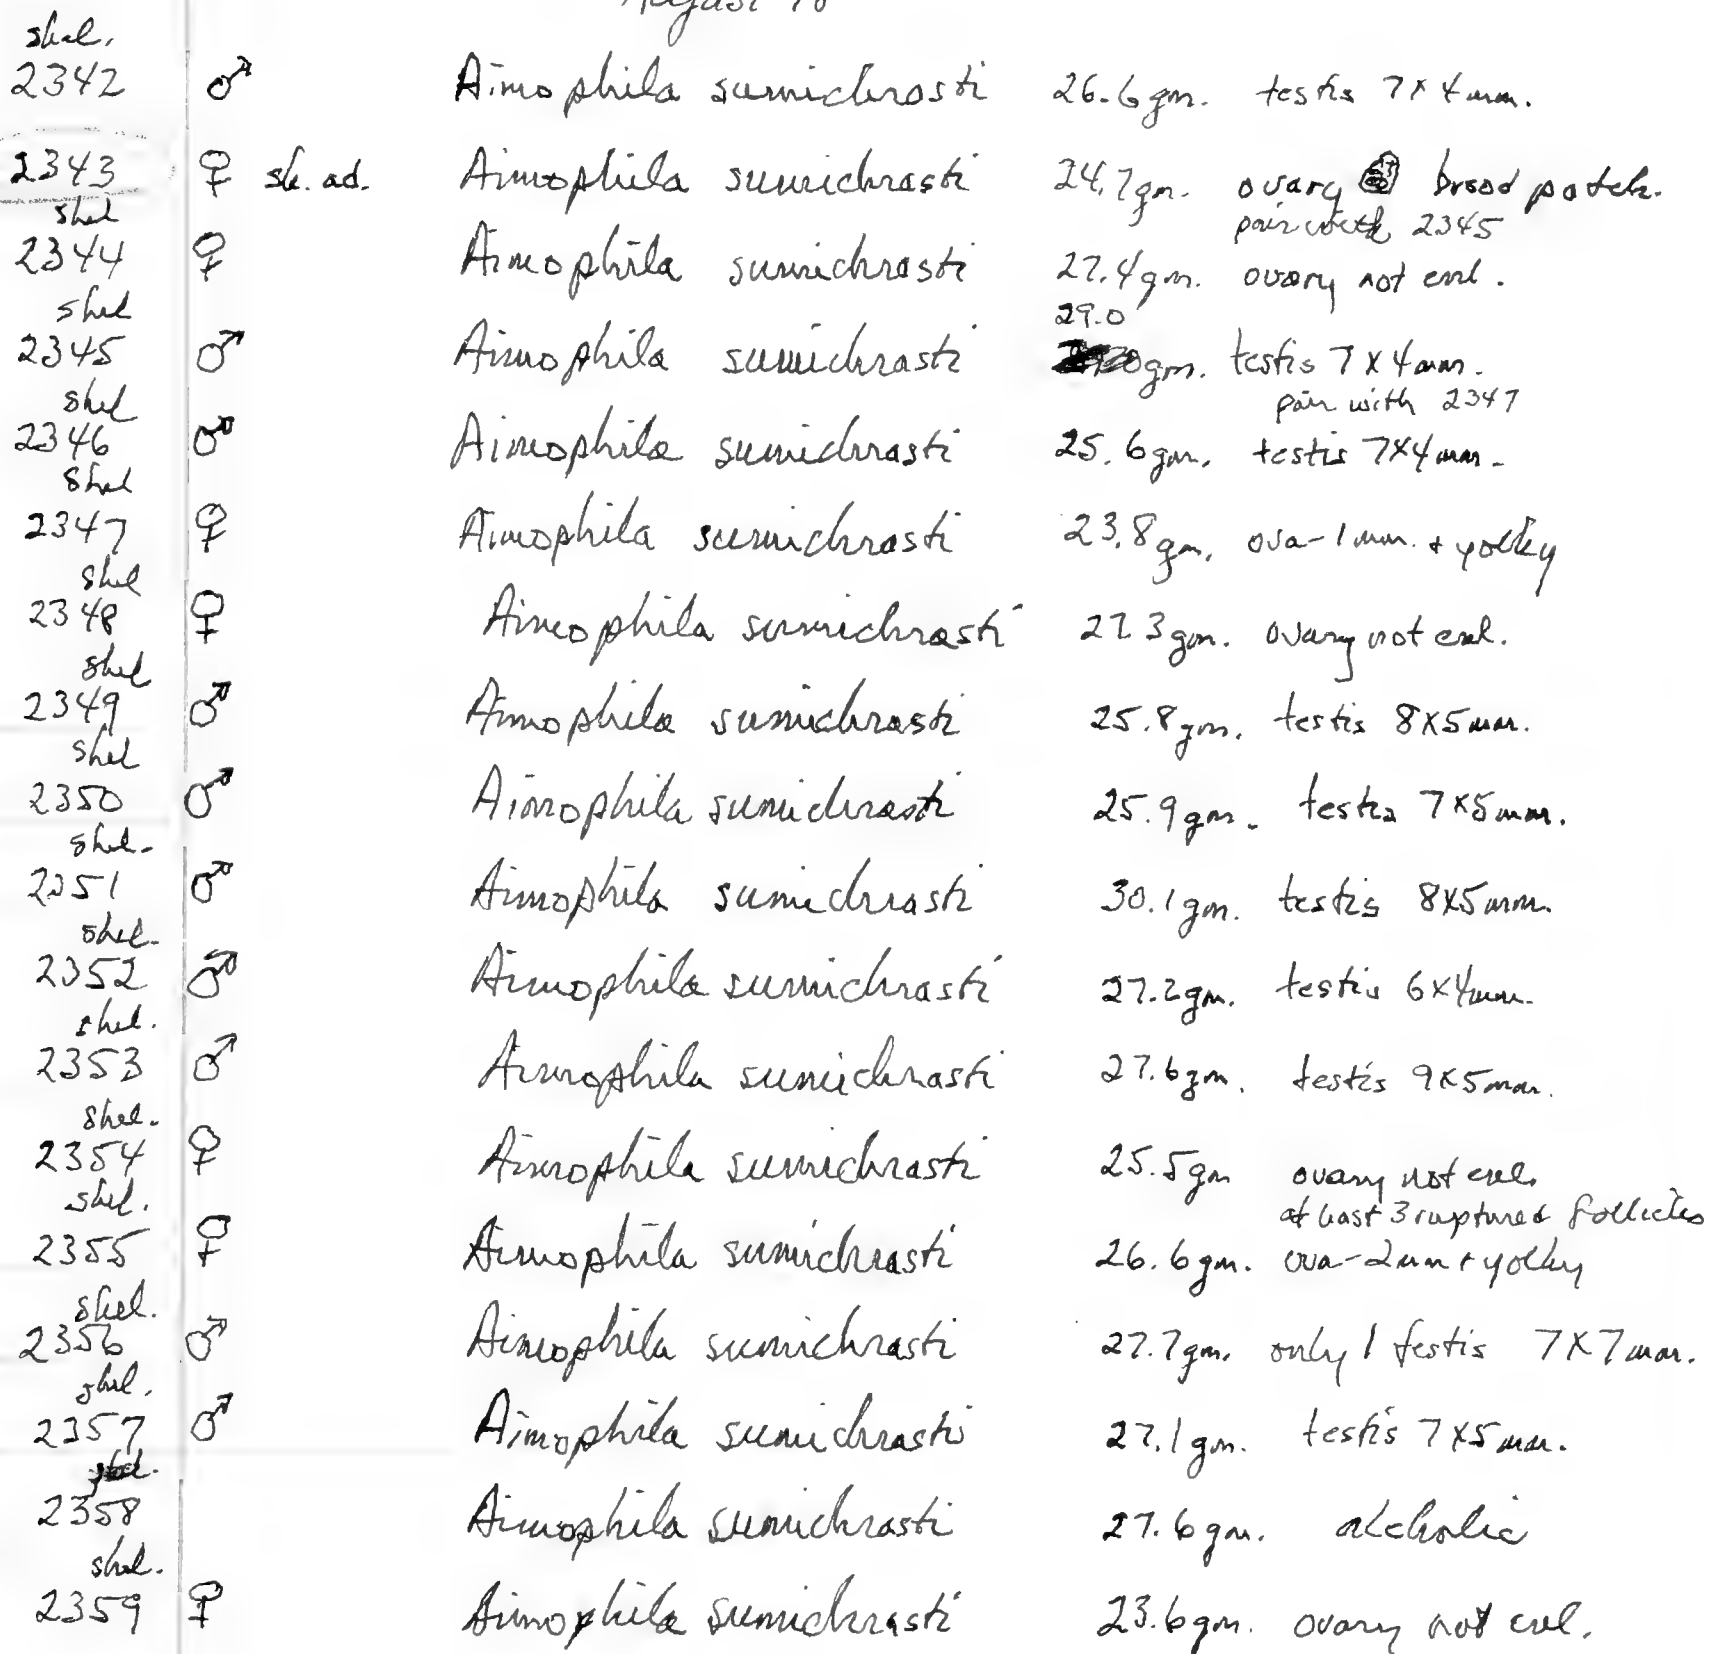 August 10
skel.
2342 ♂ Aimophila sumichrasti 26.6 gm. testis 7 x 4 mm.
2343 ♀ sk. ad. Aimophila sumichrasti 24.7 gm. ovary brood patch.
skel pair with 2345
2344 ♀ Aimophila sumichrasti 27.4 gm. ovary not enl.
skel 29.0
2345 ♂ Aimophila sumichrasti gm. testis 7 x 4 mm.
skel pair with 2347
2346 ♂ Aimophila sumichrasti 25.6 gm. testis 7x4 mm.
skel
2347 ♀ Aimophila sumichrasti 23.8 gm. ova - 1 mm. + yolky
skel
2348 ♀ Aimophila sumichrasti 27.3 gm. ovary not enl.
skel
2349 ♂ Aimophila sumichrasti 25.8 gm. testis 8x5 mm.
skel
2350 ♂ Aimophila sumichrasti 25.9 gm. testis 7x5 mm.
skel.
2351 ♂ Aimophila sumichrasti 30.1 gm. testis 8x5 mm.
skel.
2352 ♂ Aimophila sumichrasti 27.2 gm. testis 6x4 mm.
skel.
2353 ♂ Aimophila sumichrasti 27.6 gm. testis 9x5 mm.
skel.
2354 ♀ Aimophila sumichrasti 25.5 gm ovary not enl.
skel. at least 3 ruptured follicles
2355 ♀ Aimophila sumichrasti 26.6 gm. ova - 2 mm + yolky
skel.
2356 ♂ Aimophila sumichrasti 27.7 gm. only 1 testis 7 x 7 mm.
skel.
2357 ♂ Aimophila sumichrasti 27.1 gm. testis 7 x5 mm.
skel.
2358 Aimophila sumichrasti 27.6 gm. alcholic
skel.
2359 ♀ Aimophila sumichrasti 23.6 gm. ovary not enl.